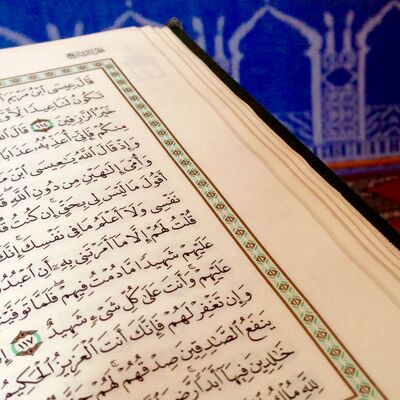 قَالَ عِيسَى ٱبْنُ مَرْيَمَ
تَكُونُ لَنَا عِيدًا
خَيْرُ ٱلرَّٰزِقِينَ ١١٤ قَالَ ٱللَّهُ
مِنكُمْ فَإِنِّىٓ أُعَذِّبُهُۥ عَذَابًا
وَإِذْ قَالَ ٱللَّهُ يَٰعِيسَى ٱبْنَ
وَأُمِّىَ إِلَٰهَيْنِ مِن دُونِ ٱللَّهِ
أَقُولَ مَا لَيْسَ لِى بِحَقٍّ إِن كُنتُ
نَفْسِى وَلَآ أَعْلَمُ مَا فِى نَفْسِكَ إِنَّكَ
قُلْتُ لَهُمْ إِلَّا مَآ أَمَرْتَنِى بِهِۦٓ أَنِ ٱعْبُدُوا۟
عَلَيْهِمْ شَهِيدًا مَّا دُمْتُ فِيهِمْ فَلَمَّا
عَلَيْهِمْ وَأَنتَ عَلَىٰ كُلِّ شَىْءٍ شَهِيدٌ ١١٧
وَإِن تَغْفِرْ لَهُمْ فَإِنَّكَ أَنتَ ٱلْعَزِيزُ ٱلْحَكِيمُ
يَنفَعُ ٱلصَّٰدِقِينَ صِدْقُهُمْ لَهُمْ
خَٰلِدِينَ فِيهَآ أَبَدًا
لِلَّهِ مُلْكُ